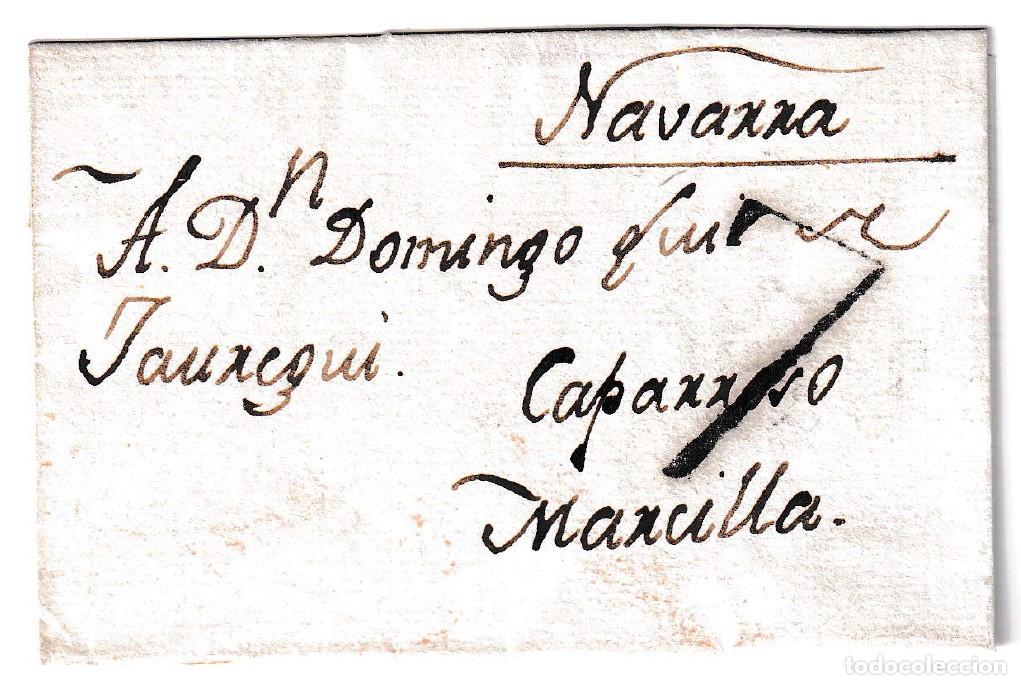 Navarra
A. Dn. Domingo
Jauregui.
Caparroso
Marcilla.
7
todocoleccion